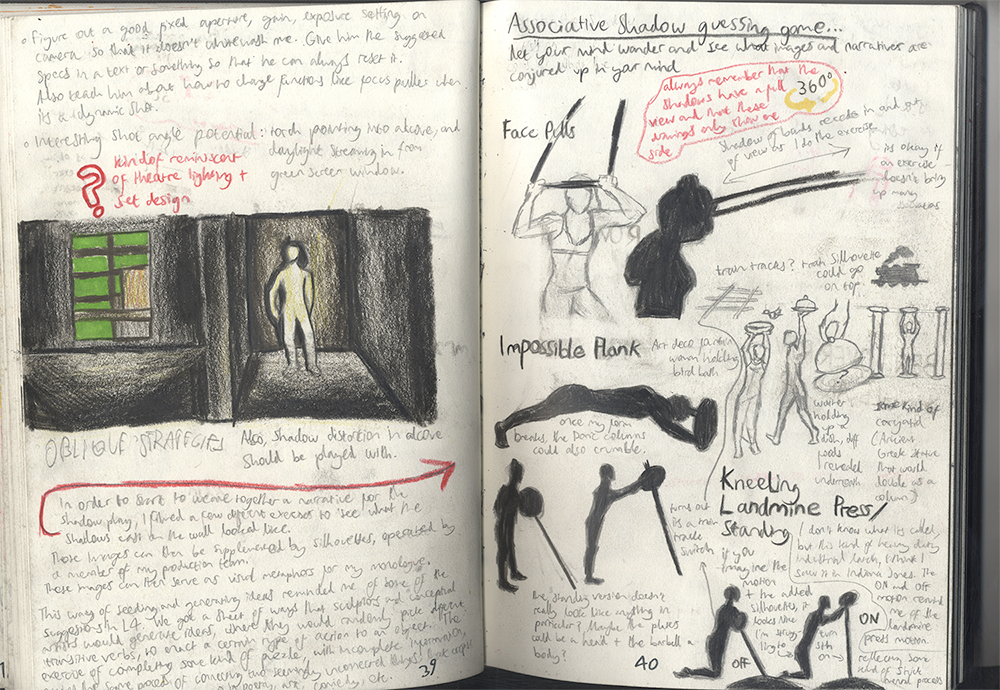 • Figure out a good fixed aperture, gain, exposure setting on
camera so that it doesn't whitewash me. Give him the suggested
specs in a text or something so that he can always reset it.
Also teach him about how to change functions like focus puller when
its a dynamic shot.
• Interesting shot angle potential: torch pointing into alcove, and
daylight streaming in from
green screen window.
? kind of reminiscent
of theatre lighting +
set design
OBLIQUE STRATEGIES
Also, shadow distortion in alcove
should be played with.
In order to start to weave together a narrative for the
shadow play, I filmed a few different exercises to 'see' what the
shadows cast on the wall looked like.
Those images can then be supplemented by silhouettes, operated by
a member of my production team.
These images can then serve as visual metaphors for my monologue.
This way of seeding and generating ideas reminded me of some of the
suggestions in L4. We got a sheet of ways that sculptors and conceptual
artists would generate ideas, where they would randomly pick different
transitive verbs, to enact a certain type of action to an object. The
exercise of completing some kind of puzzle, with incomplete information,
some process of connecting two seemingly unconnected things
art, comedy, etc.
39
Associative Shadow guessing game...
Let your mind wander and see what images and narratives are
conjured up in your mind
always remember that the
shadows have a full 360°
view and that these
drawings only show one
side
Face Pulls
Shadow of bands recede in and out
of view as I do the exercise
its okay if
an exercise
doesn't bring
up many
train tracks? train silhouette
could go
on top.
Impossible Plank
Art deco
woman holding
bird bath
once my form
breaks, the columns
could also crumble.
waiter
holding
up a
dish, diff
foods
revealed
underneath
some kind of
caryatid
(Ancient
Greek statue
that would
double as a
column)
Kneeling
Landmine Press/
Standing
turns out
its a train
track
switch
if you
imagine the
motion
+ the added
silhouettes, it
looks like
I'm trying
to
turn
sth
on
I don't know what its called,
but this kind of heavy duty
industrial switch, I think I
saw it in Indiana Jones. The
ON and OFF
motion remind
me of the
landmine
press motion
reflecting some
kind of
mental process
the standing version doesn't
really look like anything in
particular? Maybe the plates
could be a head + the barbell a
body?
OFF
ON
40